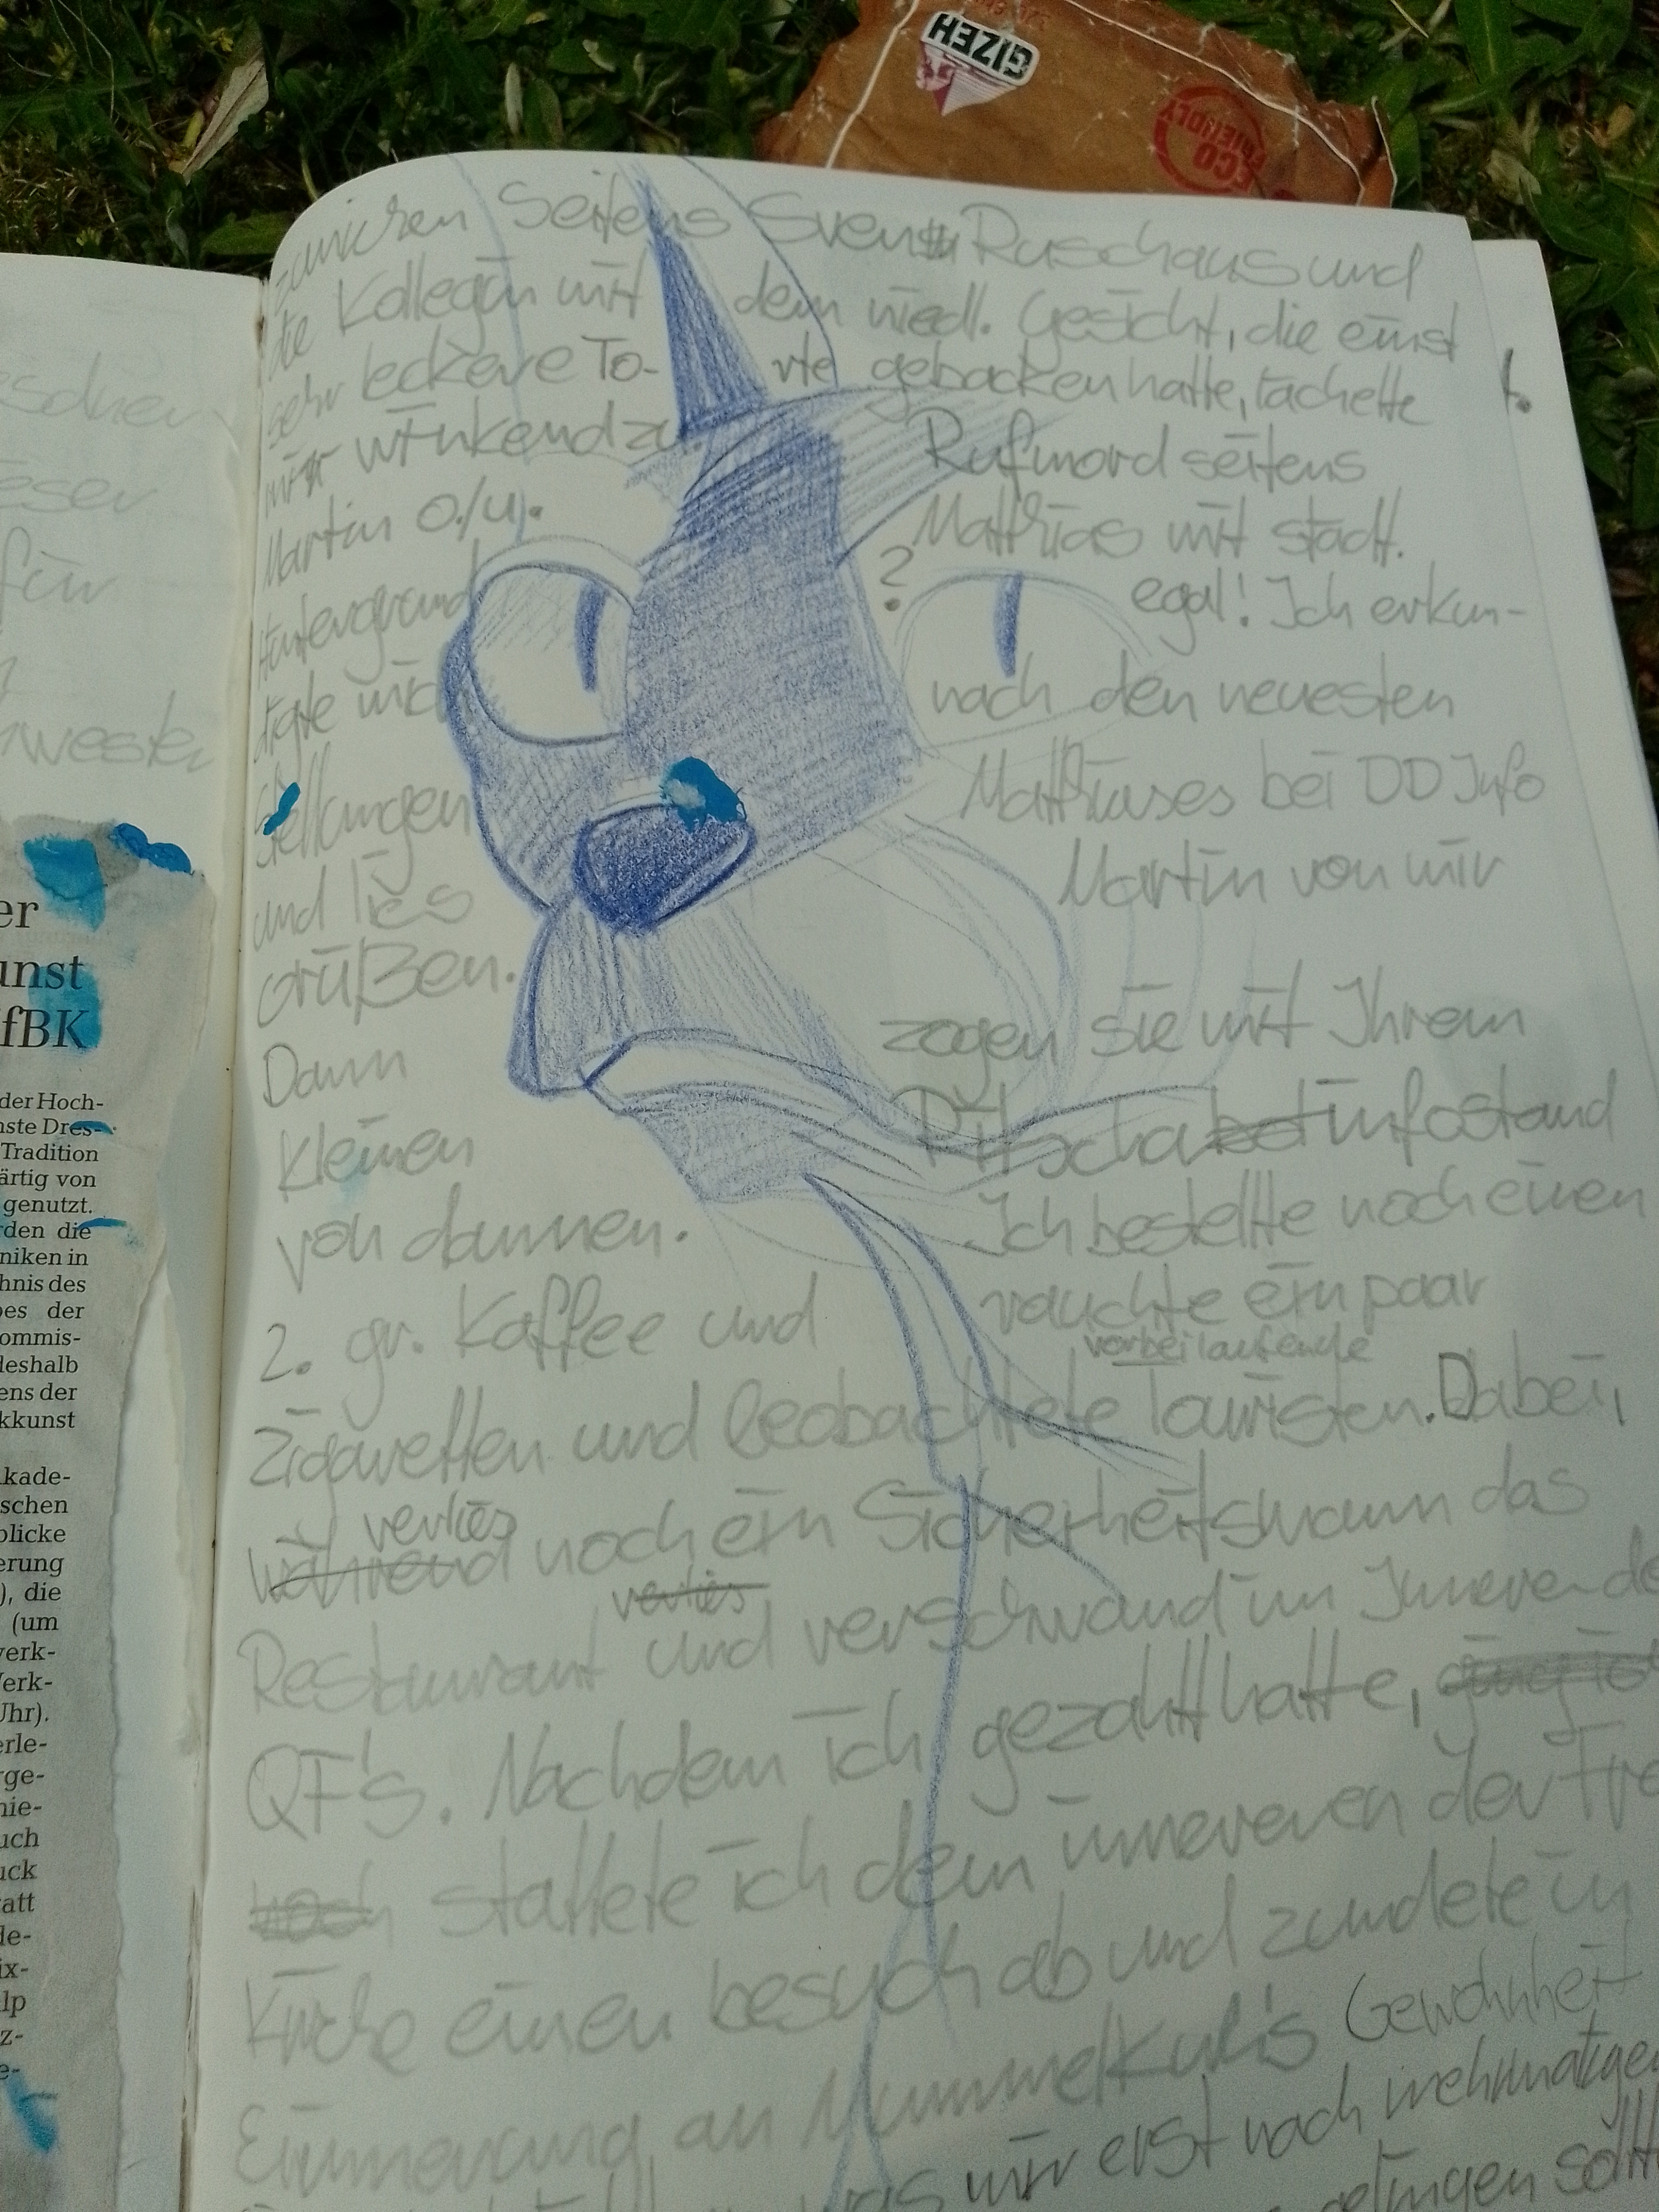 GIZEH
ECO
FRIENDLY
zunicken Seitens Sven Ruschaus und
die Kollegin mit dem niedl. Gesicht, die einst
sehr leckere To- rte gebacken hatte, lächelte
mir winkend zu. Rufmord seitens
Martin o./u. Matthias mit städt.
Hintergrund? egal! Ich erkun-
digte mich nach den neuesten
Stellungen Matthiases bei DD Info
und lies Martin von mir
grüßen.
Dann zogen sie mit Ihrem
kleinen Ritschainfostand
von dannen. Ich bestellte noch einen
2. gr. Kaffee und rauchte ein paar
vorbeilaufende
Zigaretten und beobachtete Touristen. Dabei,
verlies
während noch ein Sicherheitsmann das
verlies
Restaurant und verschwand im Inneren de
QF's. Nachdem ich gezahlt hatte, ging ic
noch stattete ich dem inneren der Fra
Kirche einen besuch ab und zündete in
Erinnerung an Mummelkuh's Gewohnheit
was mir erst nach mehrmaligen
gelingen sollt
eschen
ieser
für
hwester
er
unst
fBK
der Hoch-
nste Dres-
Tradition
ärtig von
genutzt.
rden die
niken in
hnis des
bes der
ommis-
deshalb
ens der
kkunst
kade-
schen
blicke
erung
), die
(um
verk-
Verk-
Uhr).
erle-
rge-
nie-
uch
uck
att
de-
ix-
lp
z-
e-